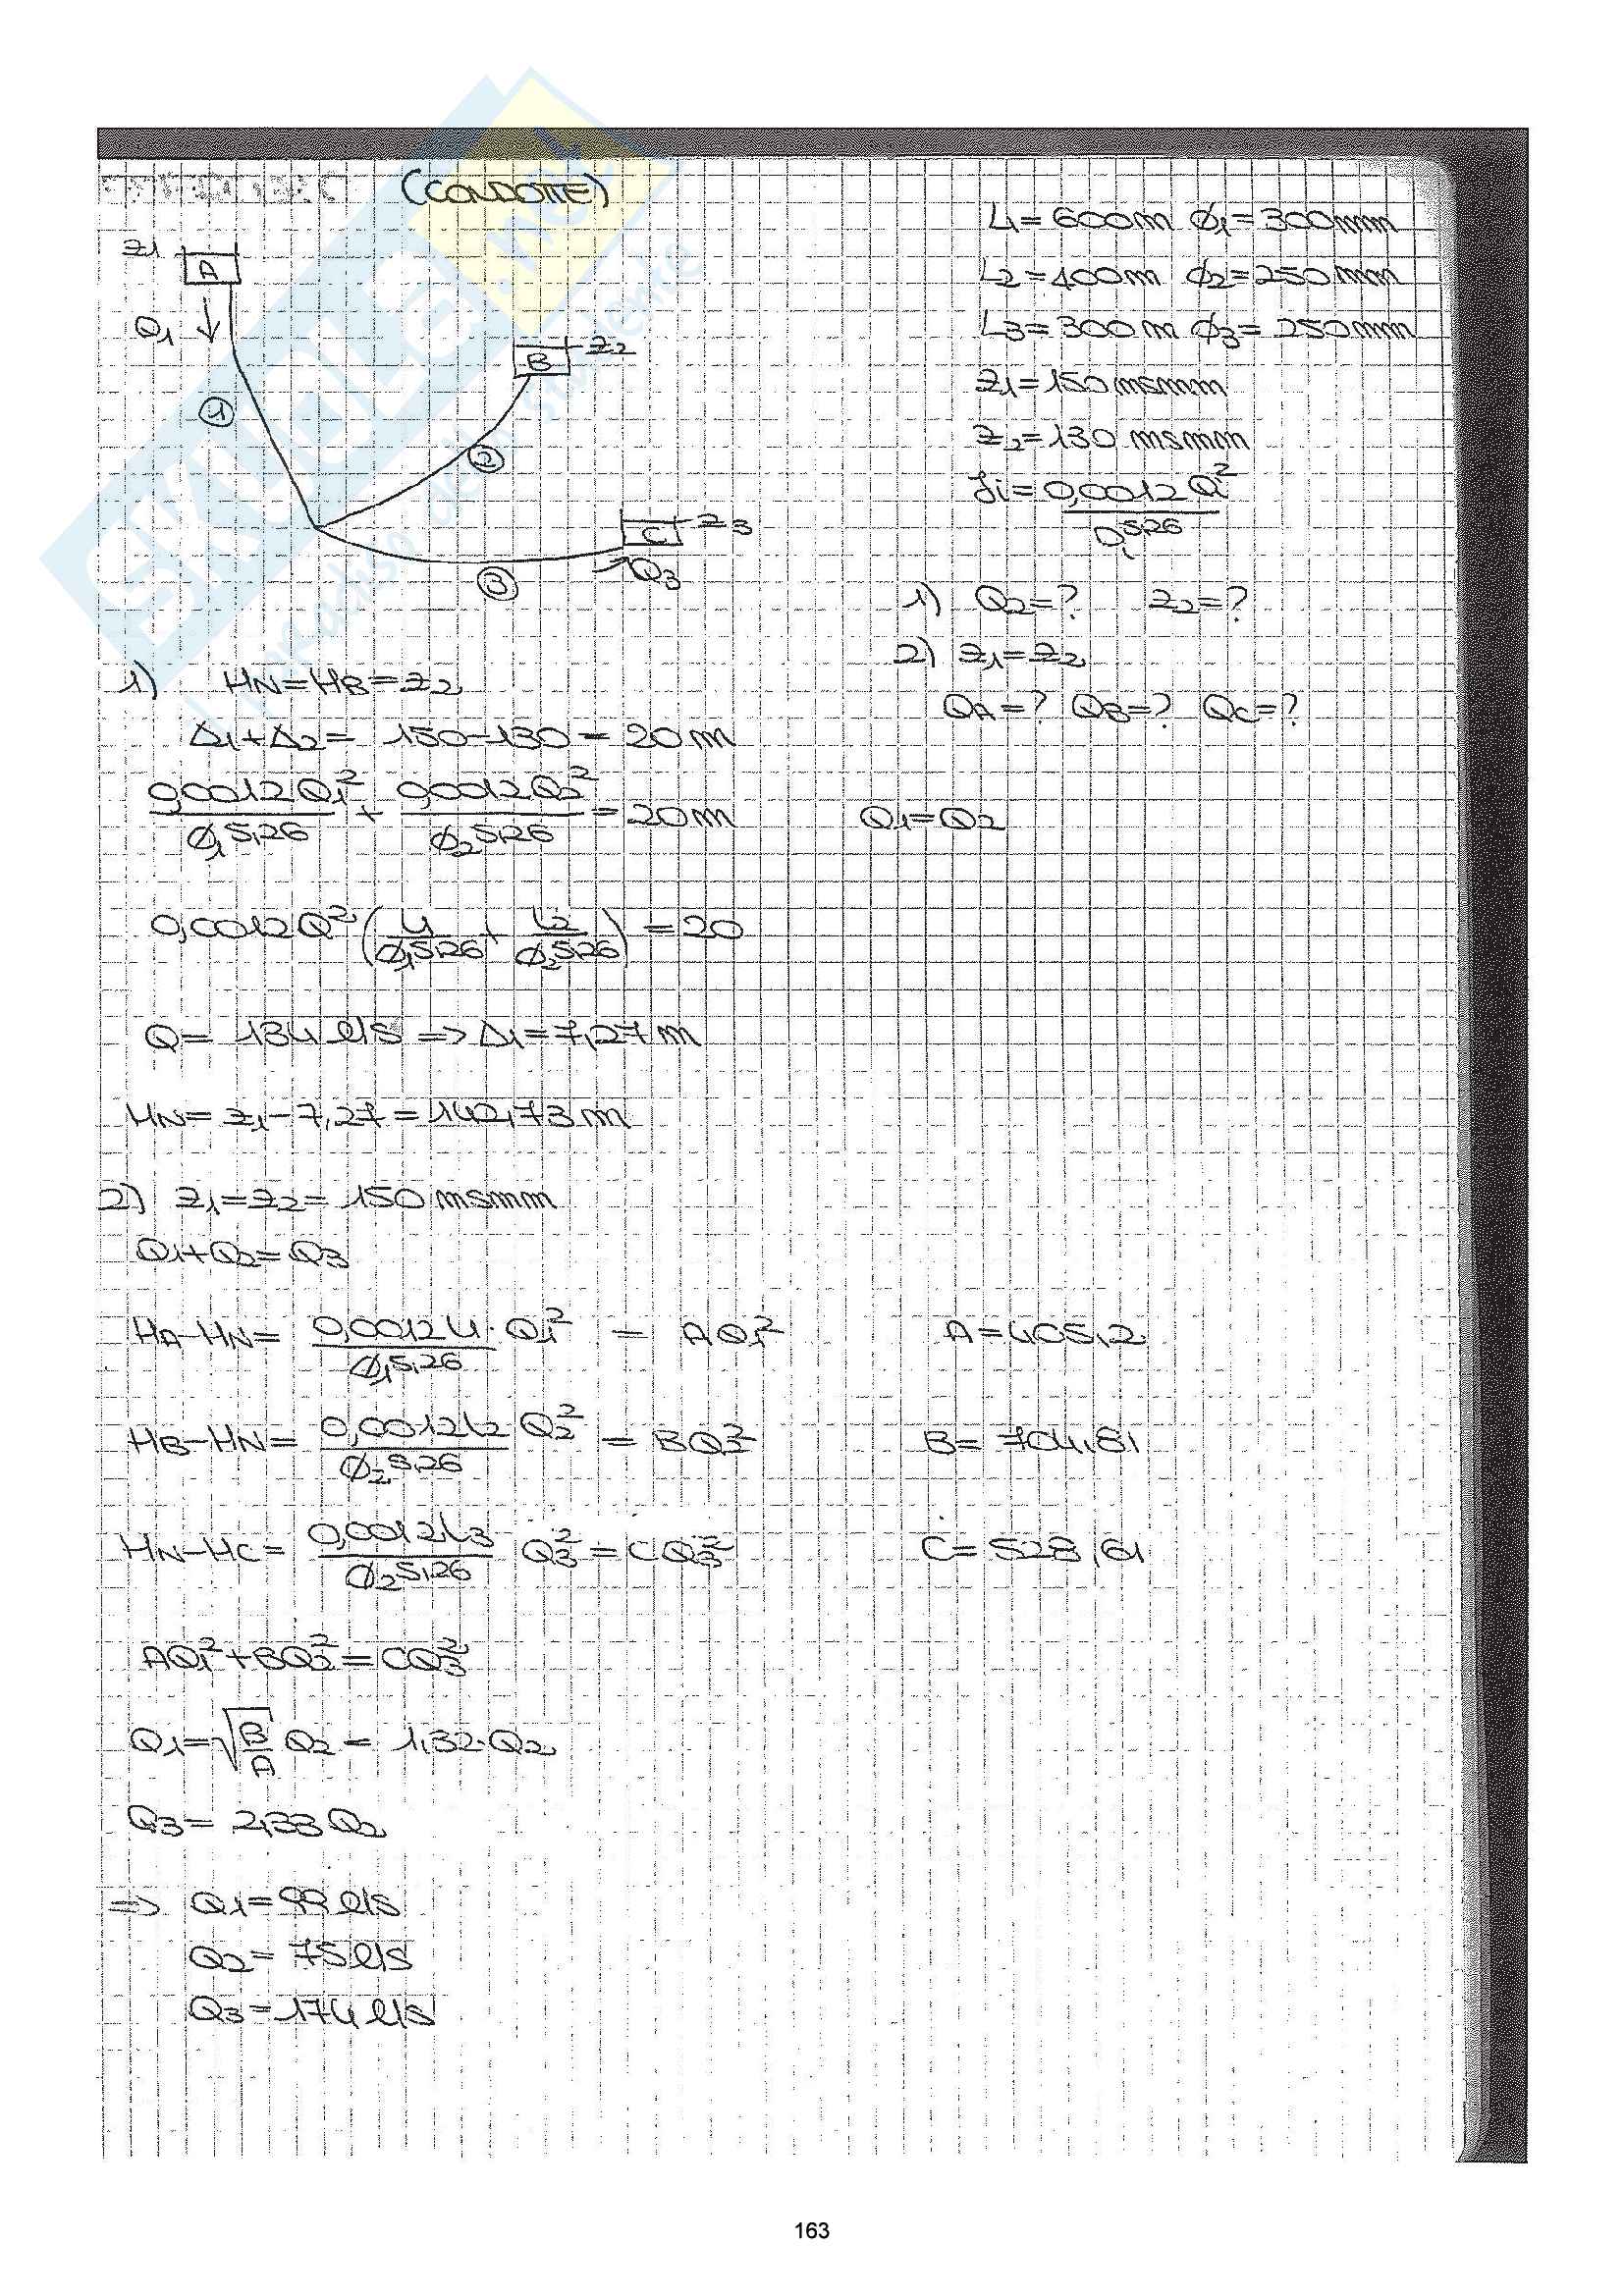 (CONDOTTE)
L1 = 600m φ1 = 300mm
L2 = 400m φ2 = 250mm
L3 = 300m φ3 = 250mm
z1 = 150 msmm
z2 = 130 msmm
Ji = 0,0012 Qi² / Di^5,26
z1
A
Q1
1
B
z2
2
C
z3
3
Q3
1) Q2=? z2=?
2) z1=z2
QA=? QB=? QC=?
1) HN=HB=z2
Δ1+Δ2= 150-130 = 20 m
0,0012Q1² / φ1^5,26 + 0,0012Q2² / φ2^5,26 = 20 m Q1=Q2
0,0012Q² (L1 / φ1^5,26 + L2 / φ2^5,26) = 20
Q= 134 l/s => Δ1= 7,27 m
HN= z1-7,27 = 142,73 m
2) z1=z2= 150 msmm
Q1+Q2=Q3
HA-HN= 0,0012 L1 / φ1^5,26 · Q1² = AQ1² A=405,2
HB-HN= 0,0012 L2 / φ2^5,26 Q2² = BQ2² B= 704,81
HN-HC= 0,0012 L3 / φ2^5,26 Q3² = CQ3² C= 528,61
AQ1²+BQ2²=CQ3²
Q1=√(B/A) Q2 = 1,32·Q2
Q3= 2,33 Q2
=> Q1= 99 l/s
Q2= 75 l/s
Q3= 174 l/s
163